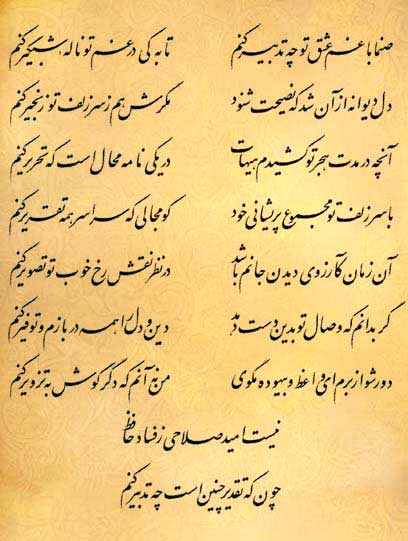 صنما با غم عشق تو چه تدبیر کنم تا به کی در غم تو ناله شبگیر کنم
دل دیوانه از آن شد که نصیحت شنود مگرش هم ز سر زلف تو زنجیر کنم
آنچه در مدت هجر تو کشیدم هیهات در یکی نامه محال است که تحریر کنم
با سر زلف تو مجموع پریشانی خود کو مجالی که سراسر همه تقریر کنم
آن زمان کآرزوی دیدن جانم باشد در نظر نقش رخ خوب تو تصویر کنم
گر بدانم که وصال تو بدین دست دهد دین و دل را همه در بازم و توفیر کنم
دور شو از برم ای واعظ و بیهوده مگوی من نه آنم که دگر گوش به تزویر کنم
نیست امید صلاحی ز فساد حافظ
چون که تقدیر چنین است چه تدبیر کنم